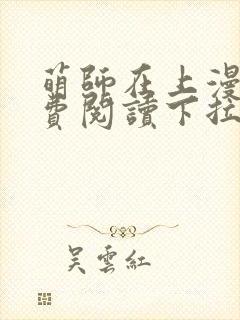 萌師在上漫
費閱讀下拉
吳雲紅